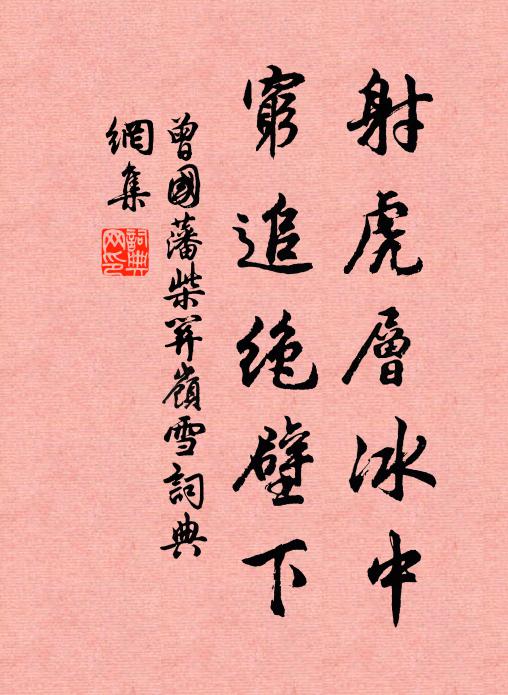 射虎層冰中
窮追絶壁下
曾國藩柴關嶺雪詞典
網集
詞典網印